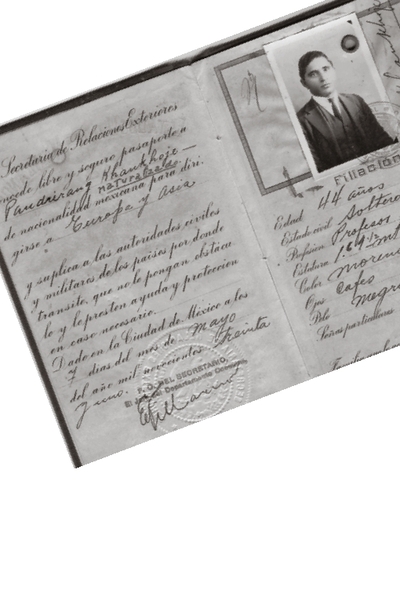 Secretaría de Relaciones Exteriores
concede libre y seguro pasaporte a
Pandurang Khankhoje—
naturalizado
de nacionalidad mexicana para diri-
girse a Europa y Asia
y suplica a las autoridades civiles
y militares de los países por donde
transite, que no le pongan obstácu-
lo y le presten ayuda y protección
en caso necesario.
Dado en la Ciudad de México a los
7 días del mes de Mayo
del año mil novecientos treinta
y uno.
P. O. DEL SECRETARIO,
Filiación
Edad 44 años
Estado civil Soltero
Profesión Profesor
Estatura 1.69½ mt
Color Moreno
Ojos Cafés
Pelo Negro
Señas particulares